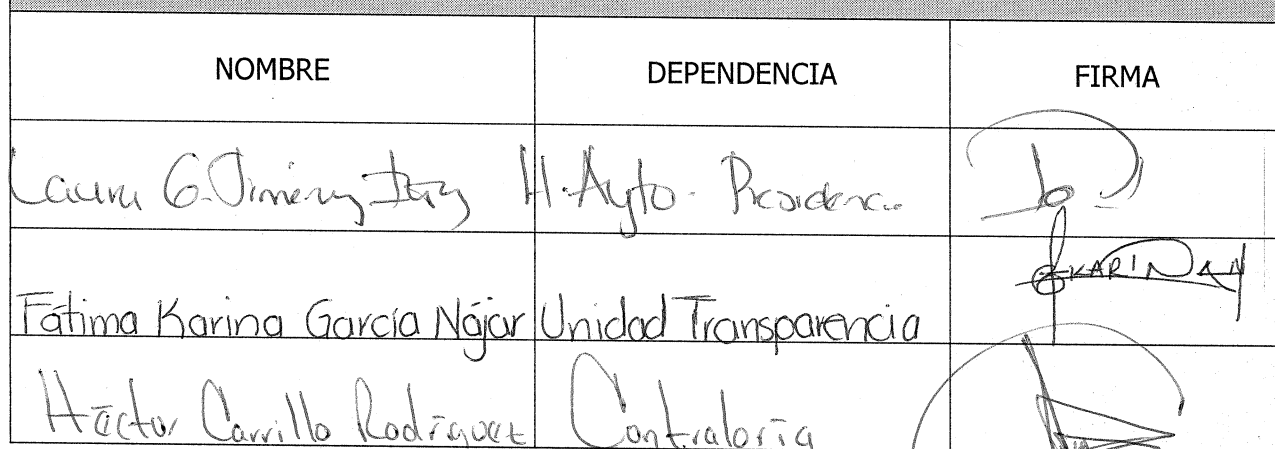 NOMBRE DEPENDENCIA FIRMA
Laura G. Jiménez H. Ayto. Presidencia
KARINA
Fátima Karina García Nájar Unidad Transparencia
Héctor Carrillo Rodríguez Contraloría